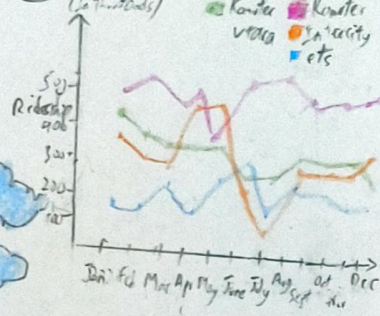 (In thousands)
Komuter
Utara
Komuter
Intercity
ets
500
Ridership
400
300
200
100
Jan Feb Mac Apr May June July Aug Sept Oct Nov Dec